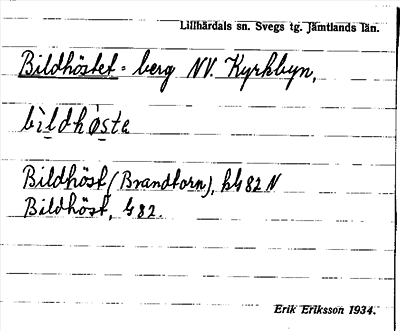 Lillhärdals sn. Svegs tg. Jämtlands län.
Bildhöstet = berg NV. Kyrkbyn,
bìldhò̱ste
Bildhöst (Brandtorn), kG82 N
Bildhöst, G82.
Erik Eriksson 1934.